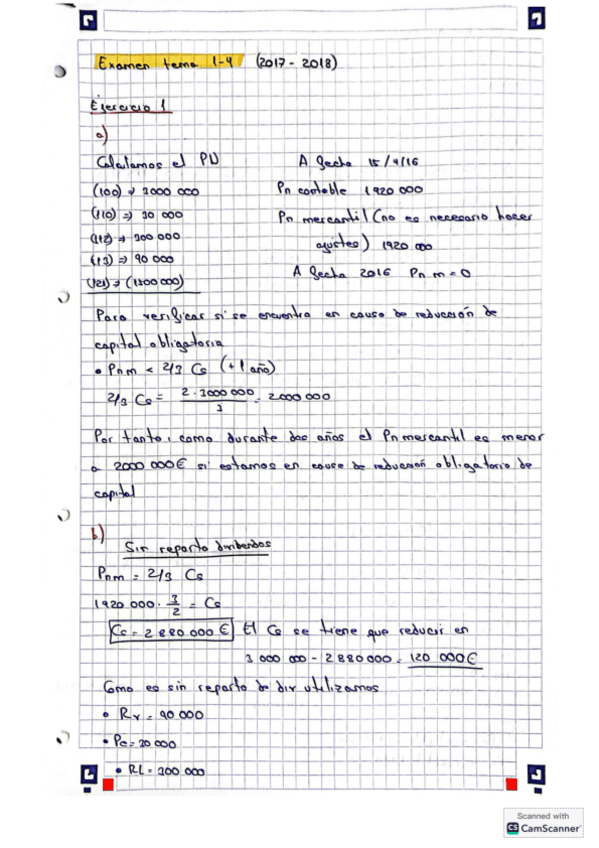 Examen tema 1-4 (2017-2018)
Ejercicio 1
a)
Calculamos el PN
(100) ⇒ 3000 000
(110) ⇒ 30 000
(112) ⇒ 300 000
(113) ⇒ 90 000
(121) ⇒ (1500 000)
A fecha 15/4/16
Pn contable 1920 000
Pn mercantil (no es necesario hacer
ajustes) 1920 000
A fecha 2016 Pn m = 0
Para verificar si se encuentra en causa de reducción de
capital obligatoria
• Pnm < 2/3 Cs (+1 año)
2/3 Cs = 2·3000 000 / 3 = 2000 000
Por tanto, como durante dos años el Pn mercantil es menor
a 2000 000€ si estamos en causa de reducción obligatoria de
capital
b)
Sin reparto dividendos
Pnm = 2/3 Cs
1920 000 · 3/2 = Cs
Cs = 2 880 000 € El Cs se tiene que reducir en
3 000 000 - 2 880 000 = 120 000€
Como es sin reparto de div utilizamos
• Rv = 90 000
• Pe = 30 000
• RL = 300 000
Scanned with
CS CamScanner